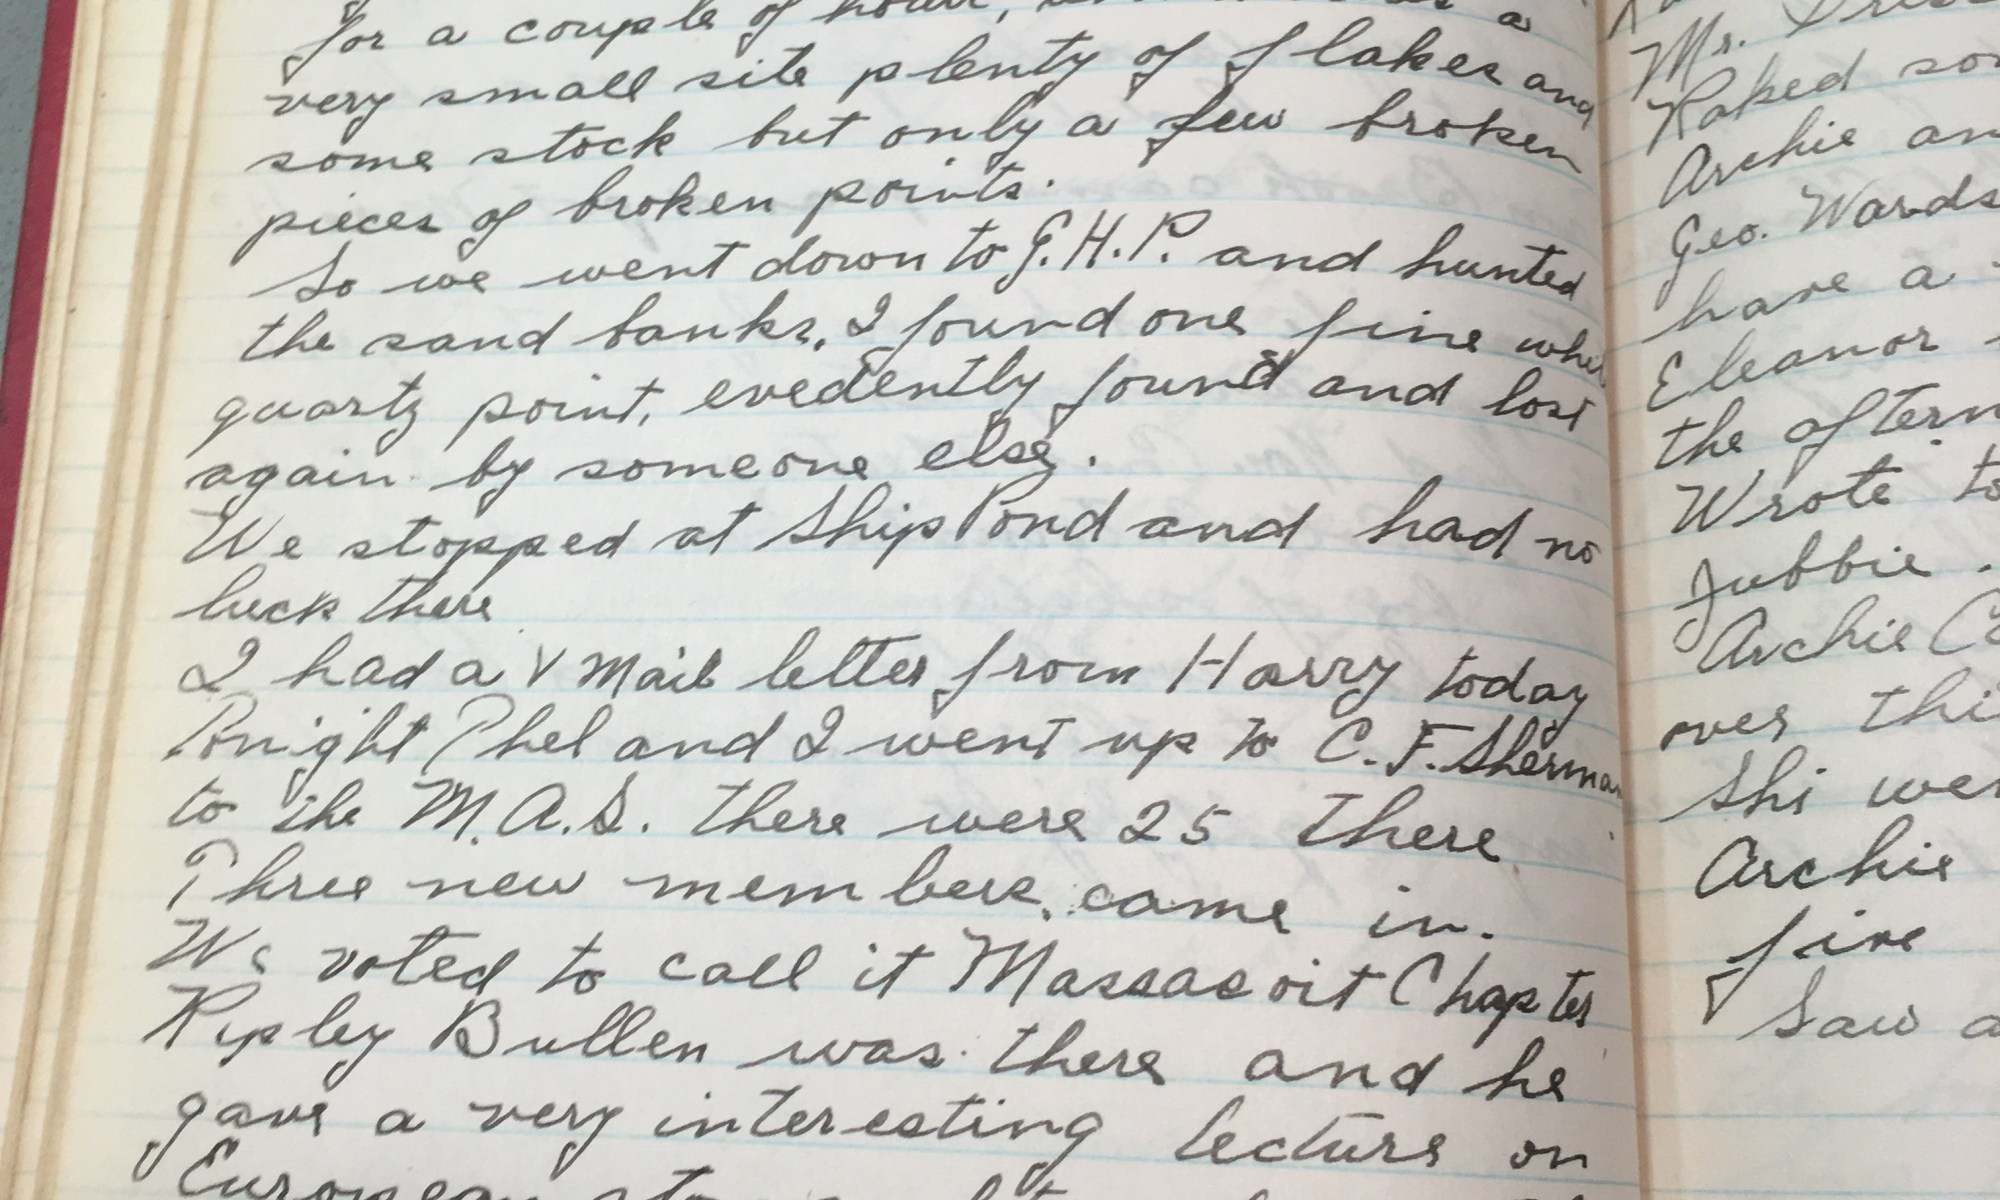 for a couple of hours, a
very small site plenty of flakes and
some stock but only a few broken
pieces of broken points.
So we went down to G.H.P. and hunted
the sand banks. I found one fine
quartz point, evedently found and lost
again by someone else.
We stopped at Ship Pond and had no
luck there
I had a V Mail letter from Harry today
Tonight Phel and I went up to C. F. Sherman
to the M.A.S. there were 25 there
Three new members came in.
We voted to call it Massasoit Chapter
Ripley Bullen was there and he
gave a very interesting lecture on
European
Mr.
Raked
Archie
Geo. Wards
have a
Eleanor
the
Wrote to
Jubbie.
Archie
over
Shi
Archie
fire
Saw a